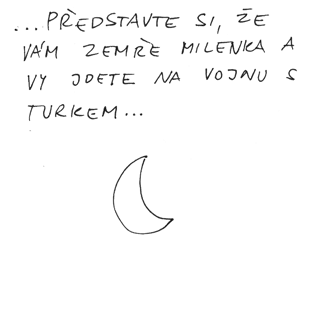 ...PŘEDSTAVTE SI, ŽE
VÁM ZEMŘE MILENKA A
VY JDETE NA VOJNU S
TURKEM...